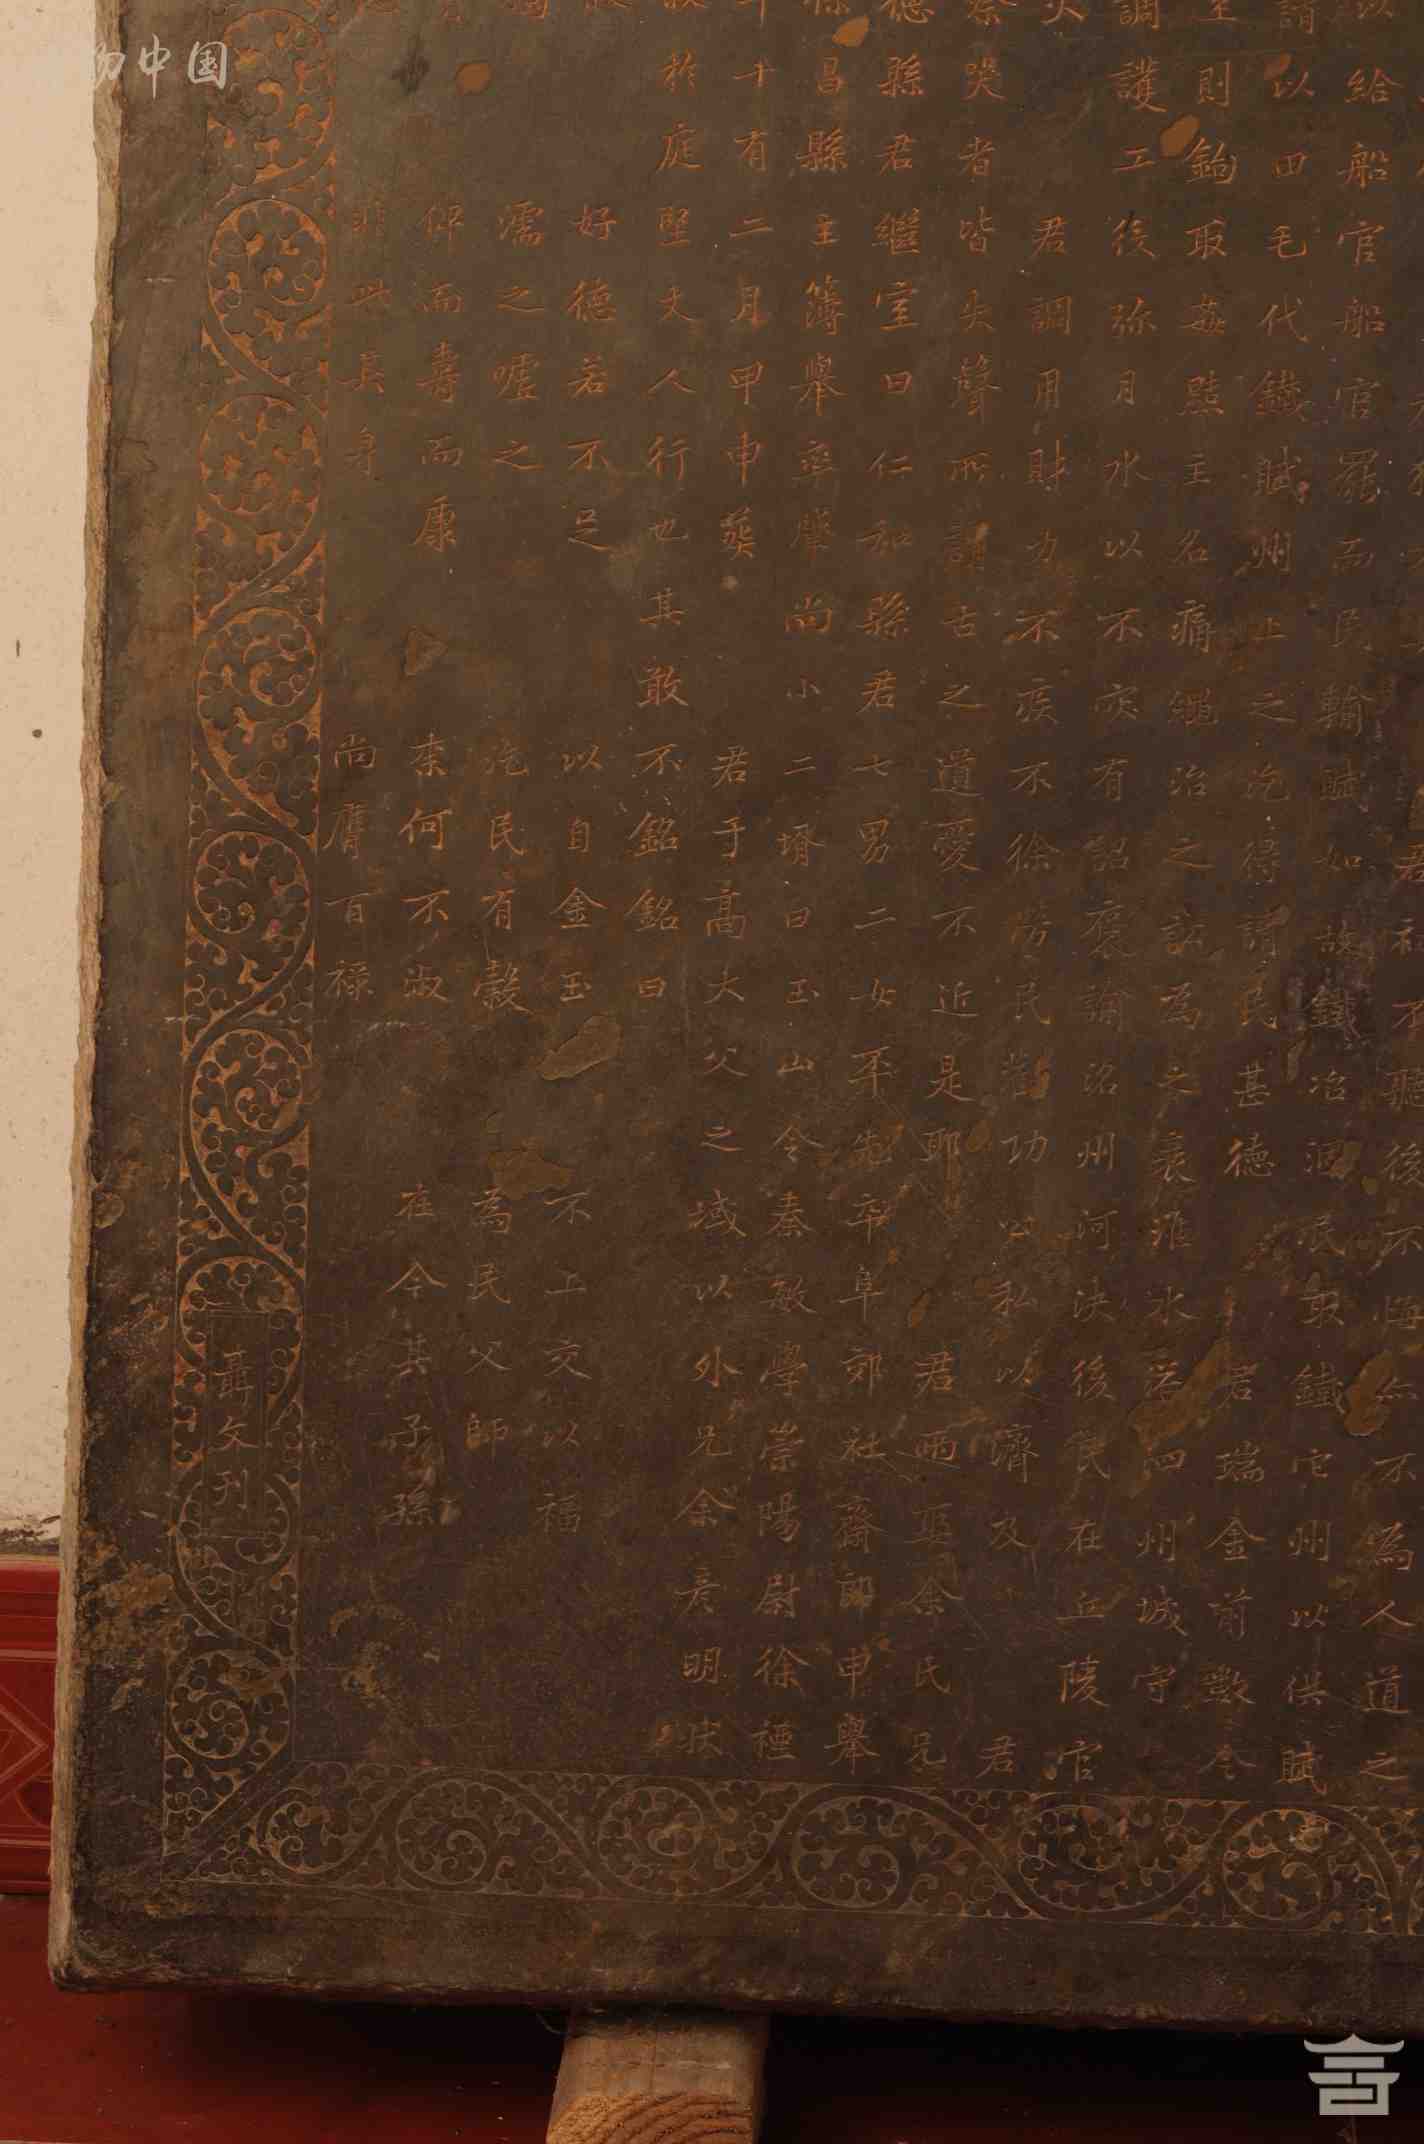 君祠不聽後不悔不為人道之
給船官船官罷而民輸賦如故鐵冶涸民取鐵它州以供賦
請以田毛代鐵賦州上之汔得請民甚德 君瑞金前數令
至則鉤取姦黠主名痛繩治之訟為之衰淮水沒四州城守
調護工役弥月水以不灾有詔褒諭洺州河決後民在丘陵官
君調用財力不疾不徐勞民勸功公私以濟及 君
祭哭者皆失聲所謂古之遺愛不近是耶 君兩娶余氏兄
德縣君繼室曰仁和縣君七男二女卒阜郊社齋郎申舉
昌縣主簿舉率犀尚小二壻曰玉山令秦敏學崇陽尉徐禋
年十有二月甲申葬 君于高大父之域以外兄余彥明狀
於庭堅丈人行也其敢不銘銘曰
好德若不足 以自金玉 不上交以福
濡之噓之 汔民有穀 為民父師
俾而壽而康 柰何不淑 在今其子孫
非此其身 尚膺百祿
聶文刊
中国